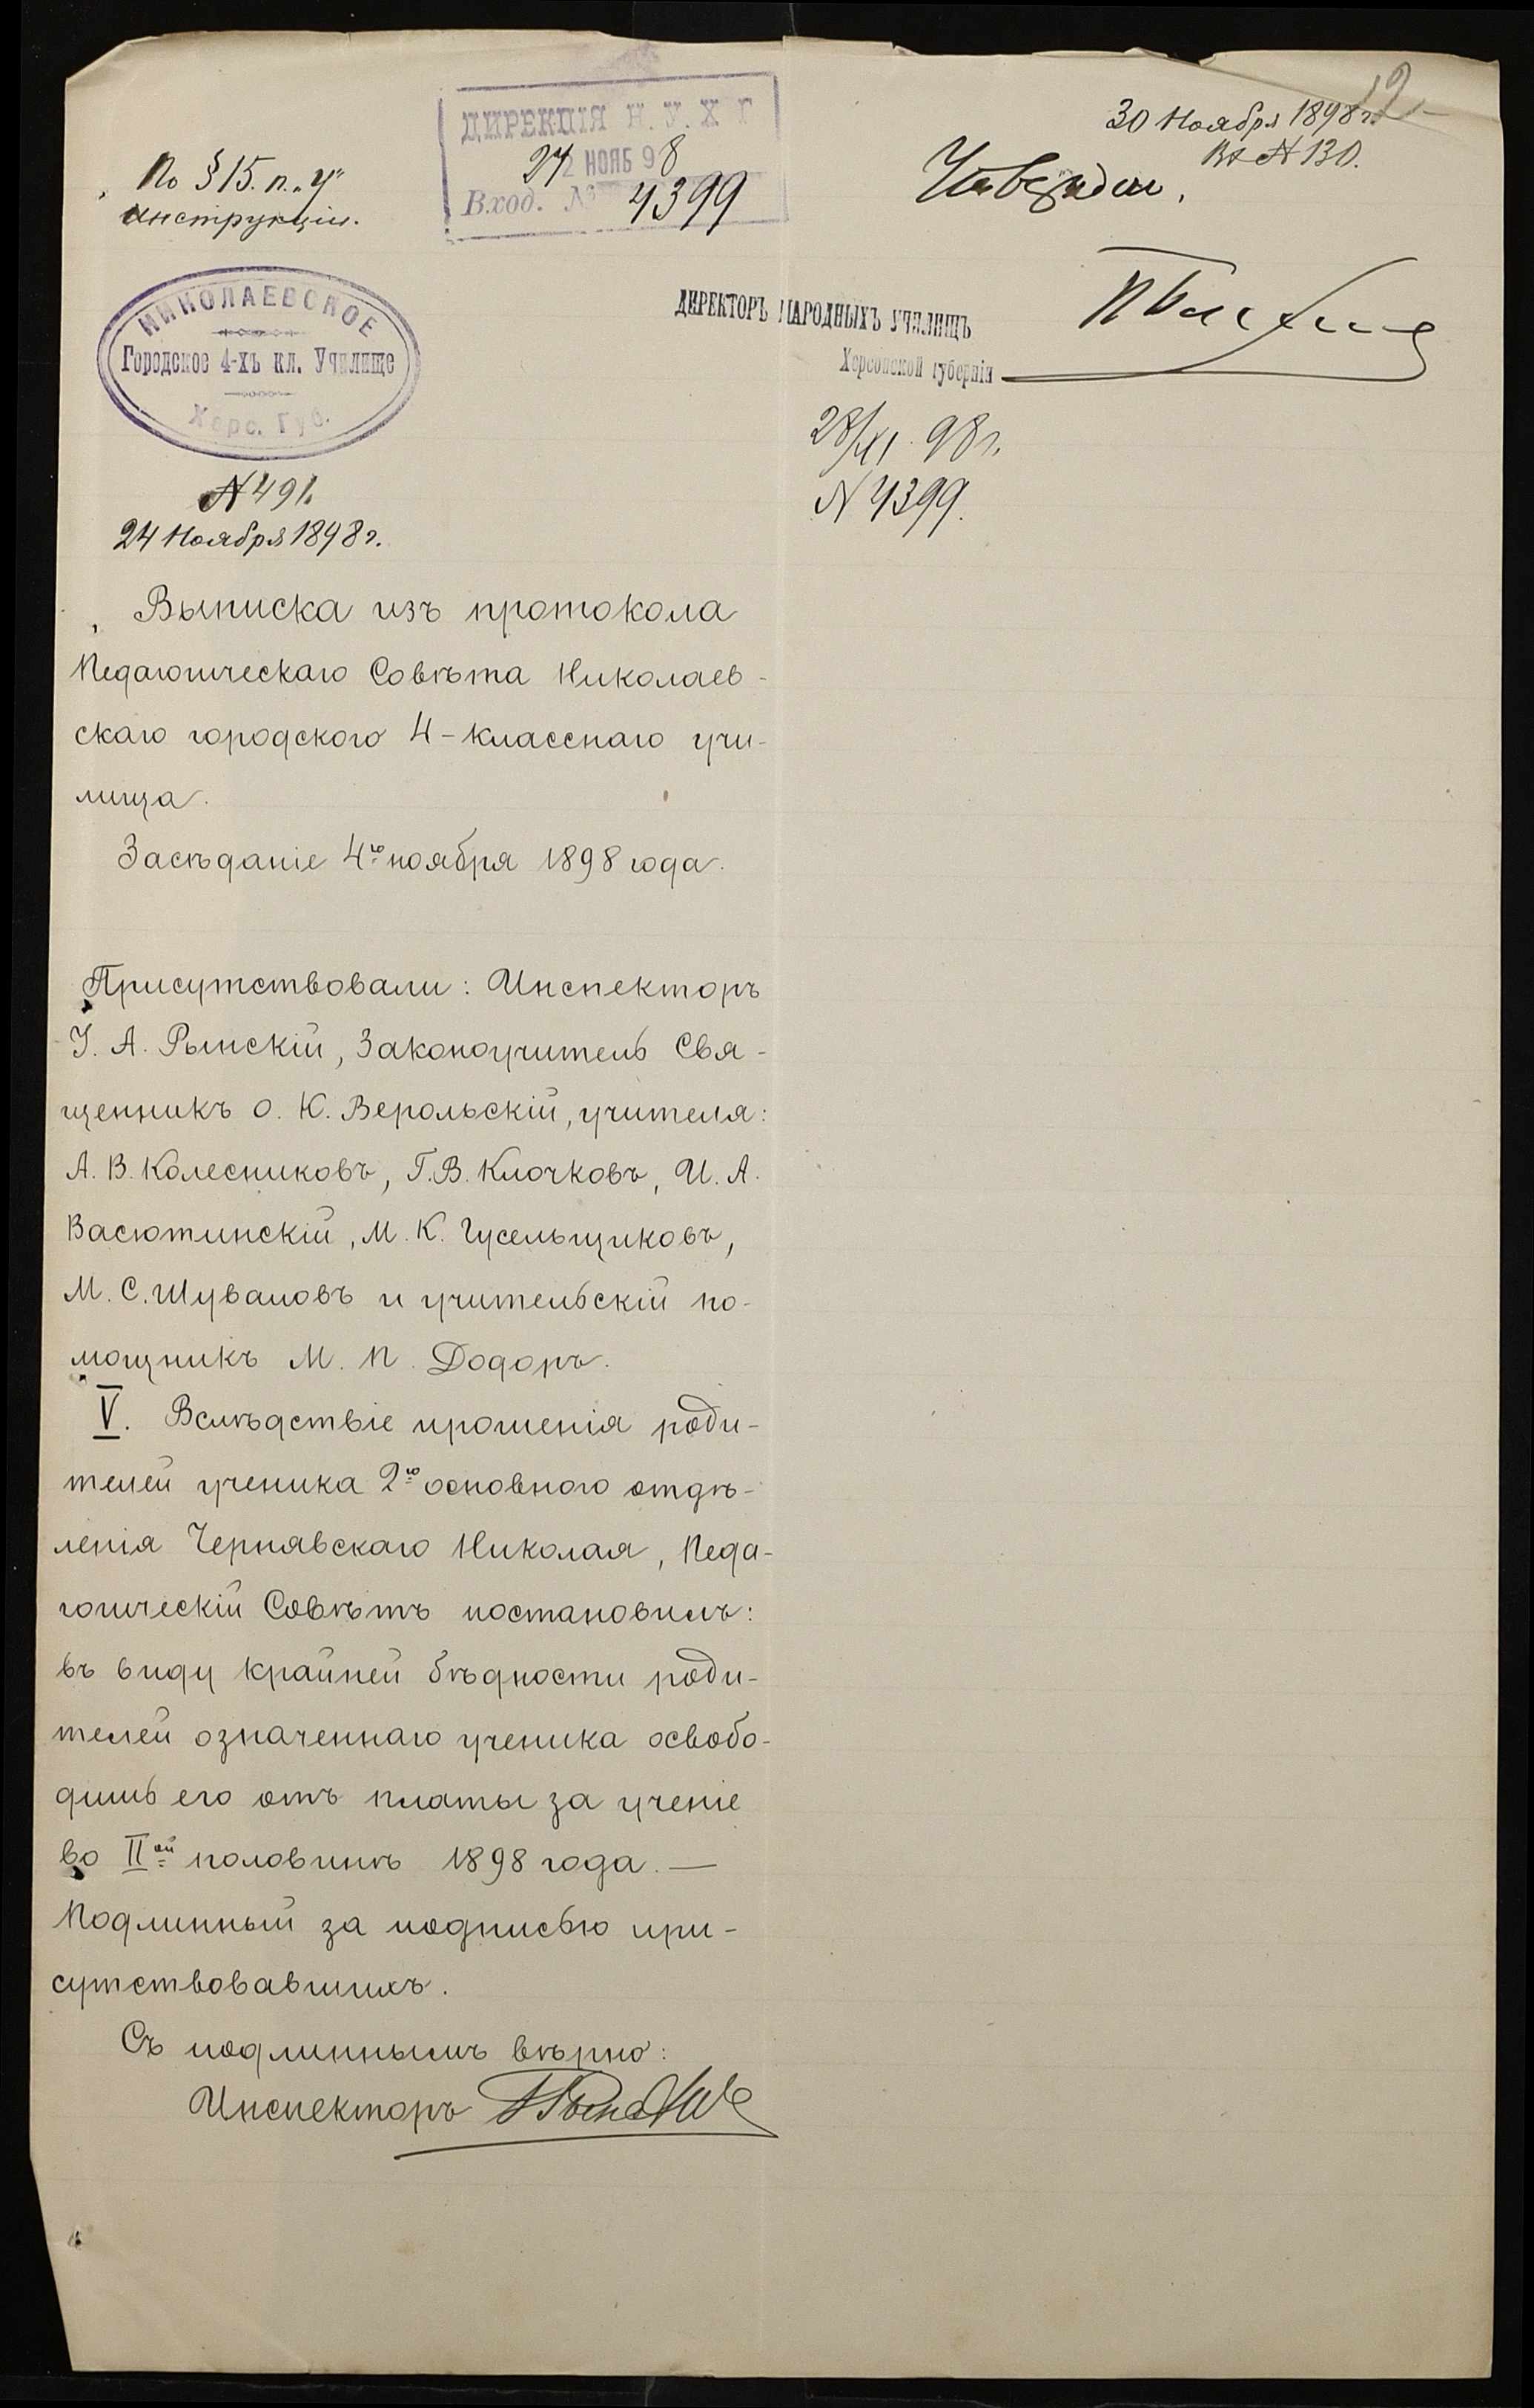 По § 15. п. „ч"
Инструкціи.
ДИРЕКЦІЯ Н. У. Х Г
27 НОЯБ 98
Вход. № 4399
30 Ноября 1898 г.
Вх № 130.
Утвержден.
НИКОЛАЕВСКОЕ
Городское 4-хъ кл. Училище
Херс. Губ.
№ 491.
24 Ноября 1898 г.
ДИРЕКТОРЪ НАРОДНЫХЪ УЧИЛИЩЪ
Херсонской губерніи
28/XI 98 г.
№ 4399.
Выписка изъ протокола
Педагогическаго Совѣта Николаев-
скаго городского 4-класснаго учи-
лища.
Засѣданіе 4го ноября 1898 года.
Присутствовали: Инспекторъ
І. А. Рынскій, Законоучитель Свя-
щенникъ о. К. Верольскій, учителя:
А. В. Колесниковъ, Г. В. Клочковъ, И. А.
Васютинскій, М. К. Гусельщиковъ,
М. С. Шуваловъ и учительскій по-
мощникъ М. П. Додоръ.
V. Вслѣдствіе прошенія роди-
телей ученика 2го основного отдѣ-
ленія Чернявскаго Николая, Педа-
гогическій Совѣтъ постановилъ:
въ виду крайней бѣдности роди-
телей означеннаго ученика освобо-
дить его отъ платы за ученіе
во IIой половинѣ 1898 года. —
Подлинный за подписью при-
сутствовавшихъ.
Съ подлиннымъ вѣрно:
Инспекторъ